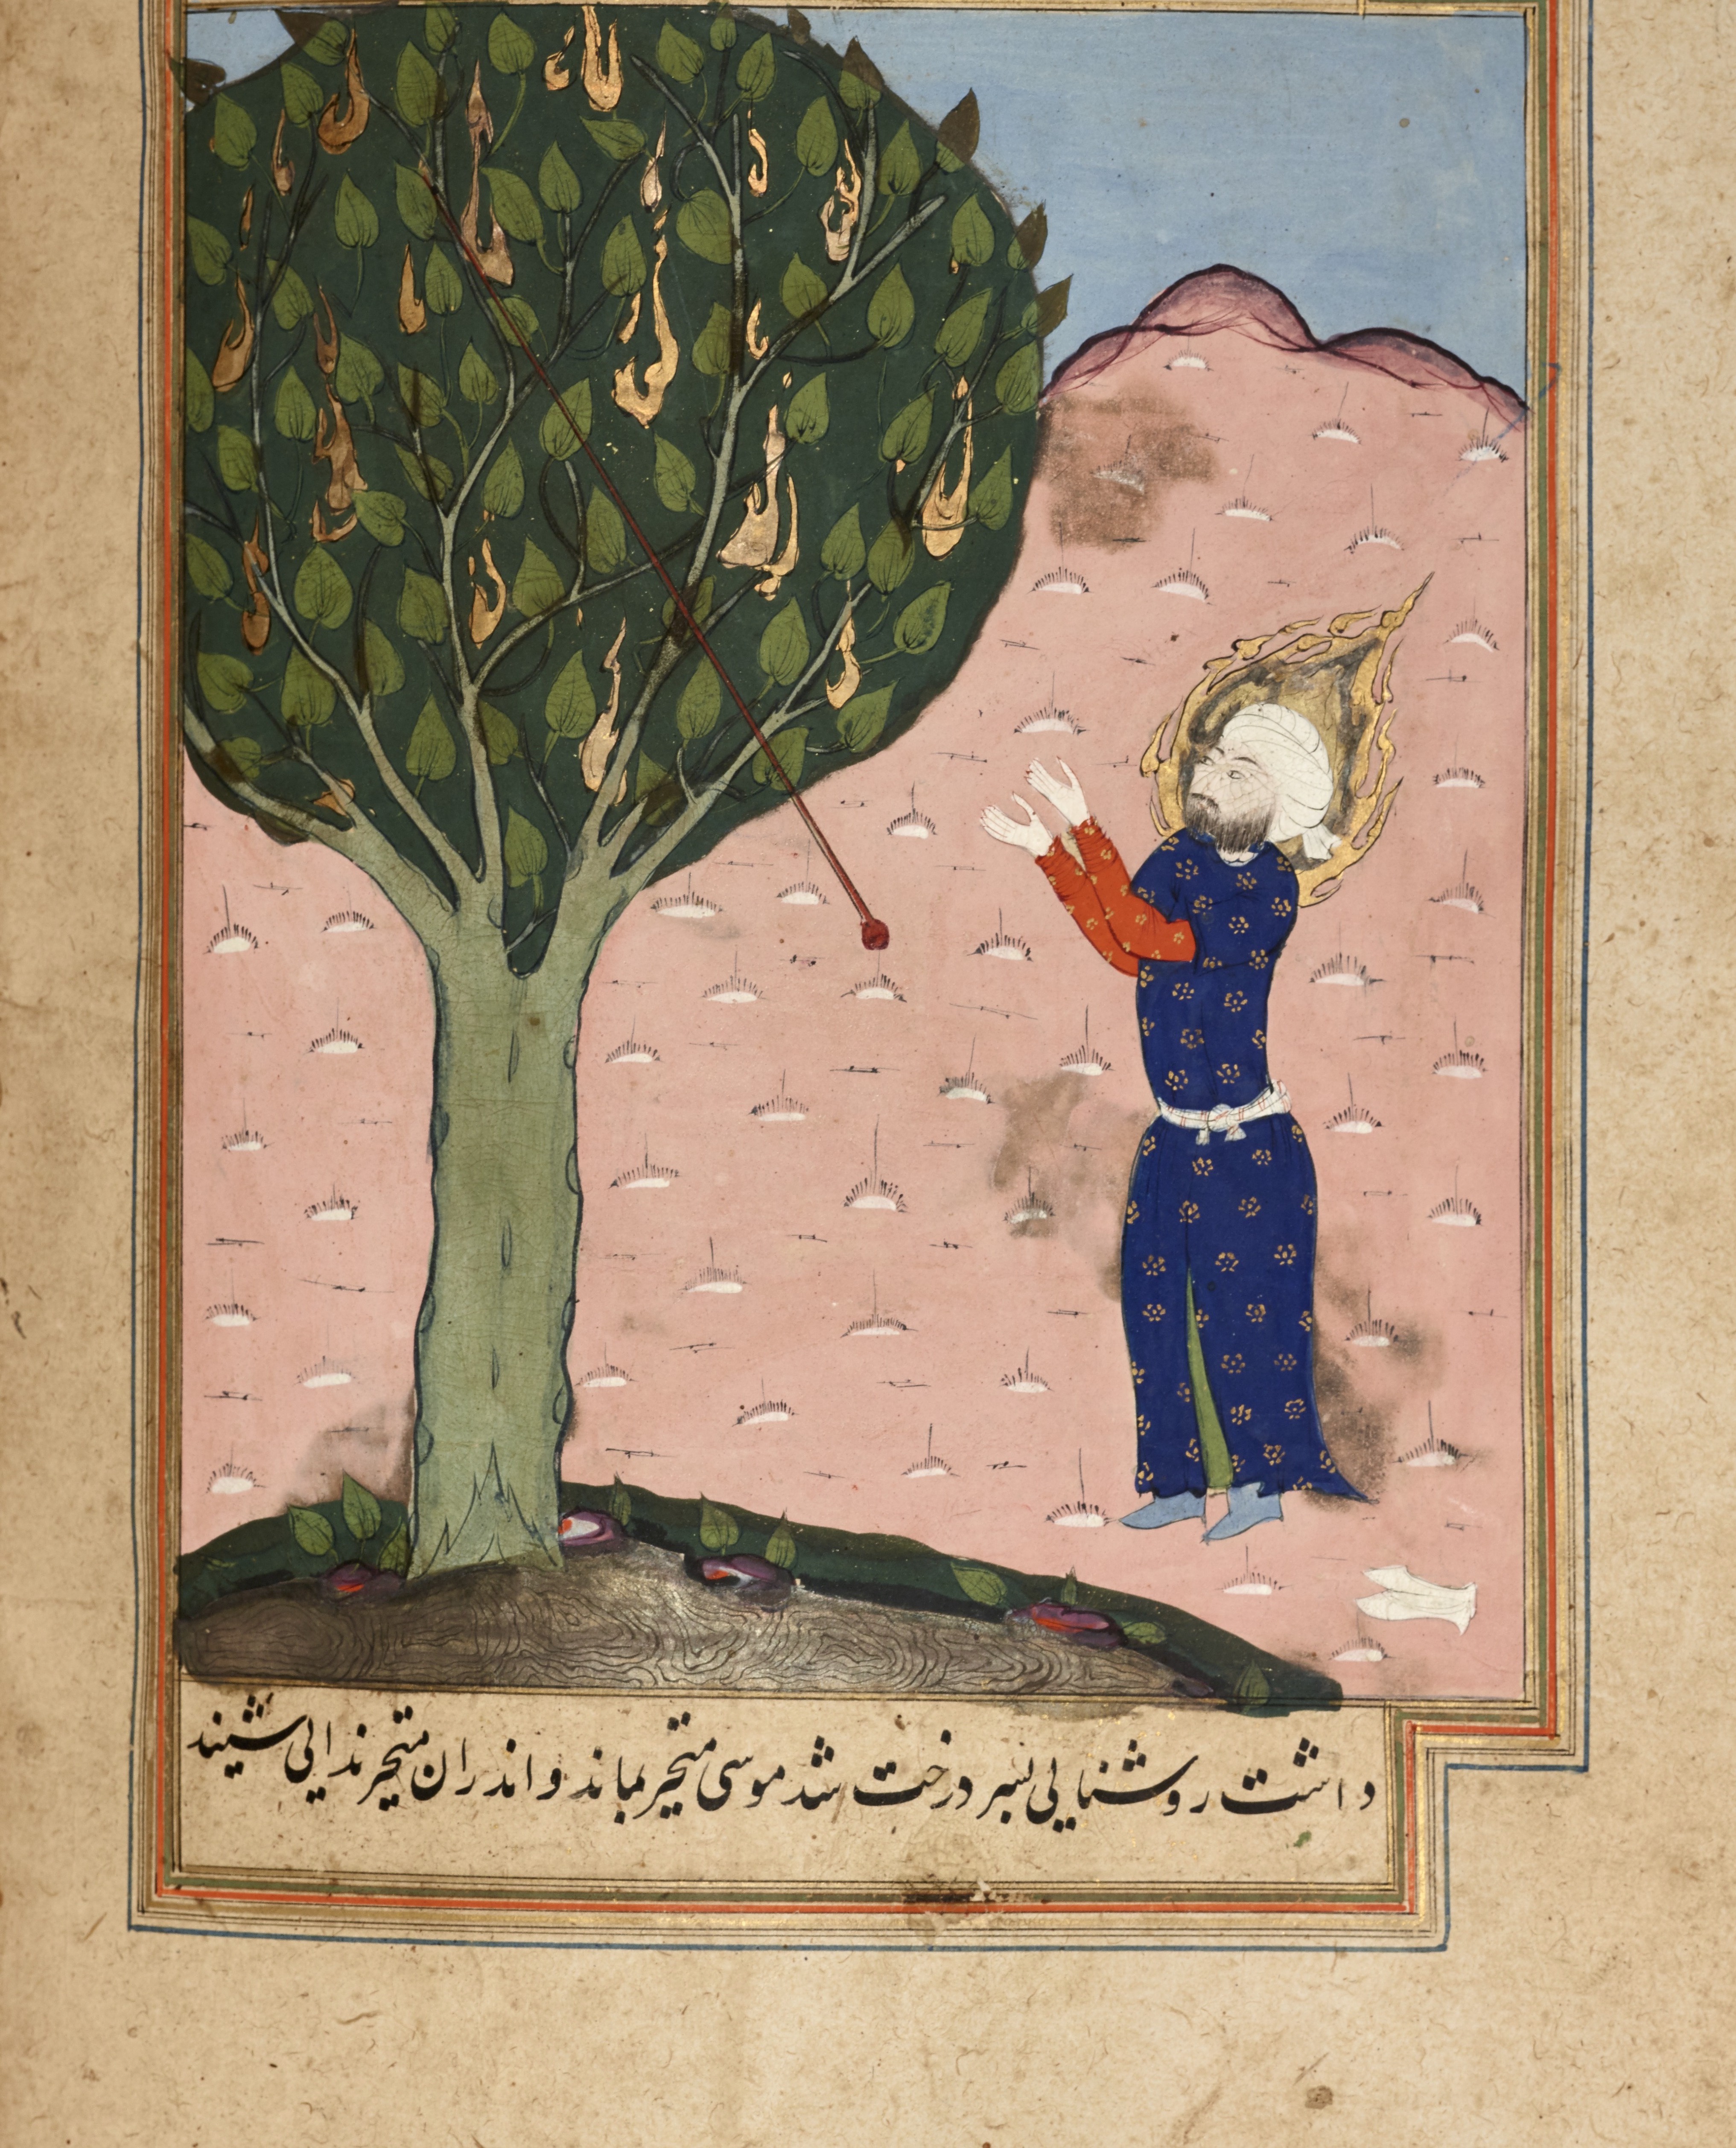 داشت روشنایی بسر درخت شد موسی متحیر بماند و اندران متحیر ندایی شنید